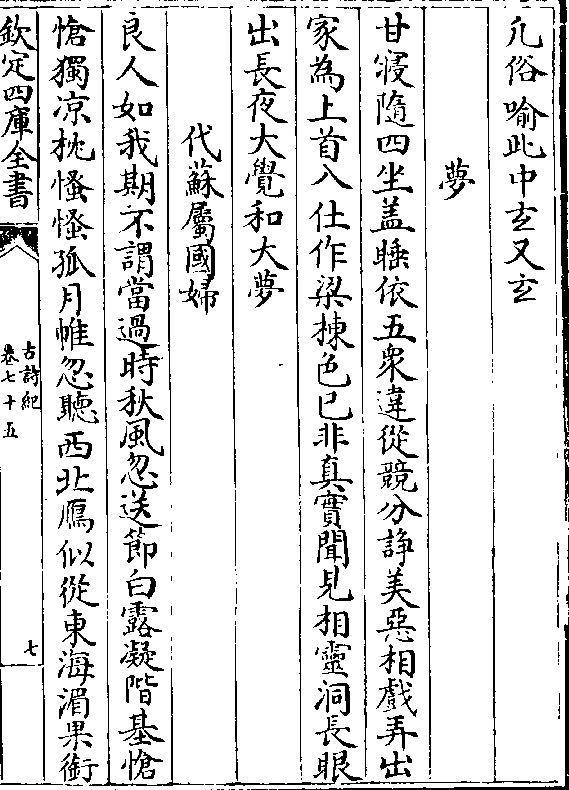 凢俗喻此中玄又玄
夢
甘寝隨四坐盖睡依五衆違從競分諍美惡相戲弄出
家為上首入仕作梁棟色已非真實聞見相靈洞長眠
出長夜大覺和大夢
代蘇屬國婦
良人如我期不謂當過時秋風忽送節白露凝階基愴
愴獨凉枕慅慅孤月帷忽聽西北鴈似從東海湄果銜
欽定四庫全書
古詩紀
卷七十五
七